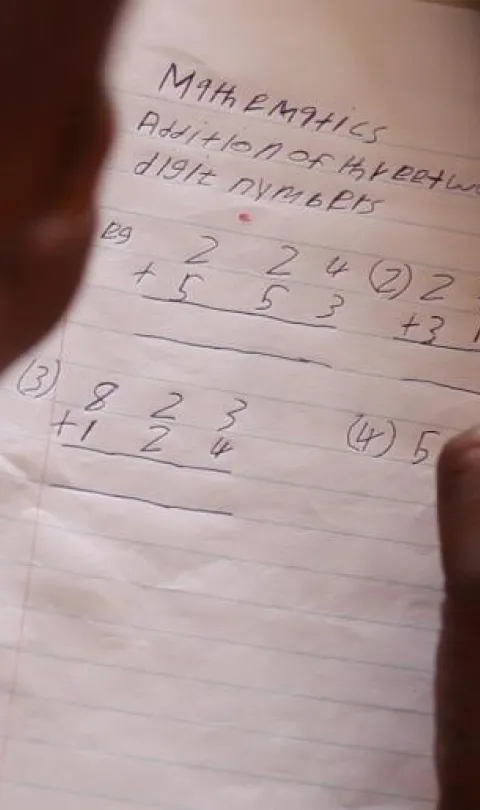 Mathematics
Addition of three tw
digit nymbers
eg 2 2 4 (2) 2
+ 5 5 3 +3 1
(3) 8 2 3
+1 2 4 (4) 5